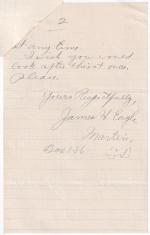 2
at any time.
I wish you would
look after this at once,
please.
Yours Respectfully,
James H. Eagle
Martin,
Box 136 S.D.